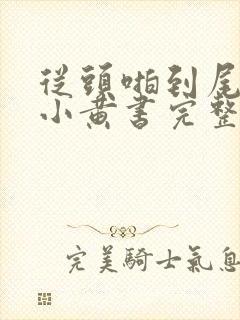 從頭啪到尾
小黄書完整
完美騎士氣息